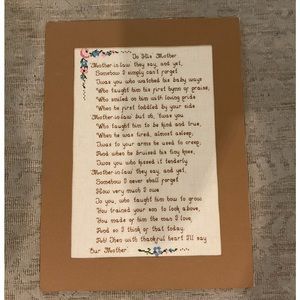 To His Mother
Mother-in-law they say, and yet,
Somehow I simply can't forget
'Twas you who watched his baby ways
Who taught him his first hymn of praise,
Who smiled on him with loving pride
When he first toddled by your side
Mother-in-law but oh, 'twas you
Who taught him to be kind and true,
When he was tired, almost asleep,
'Twas to your arms he used to creep,
And when he bruised his tiny knee,
'Twas you who kissed it tenderly
Mother-in-law they say, and yet,
Somehow I never shall forget
How very much I owe
To you, who taught him how to grow
You trained your son to look above,
You made of him the man I love,
And so I think of that today,
Ah! Then with thankful heart I'll say
Our Mother